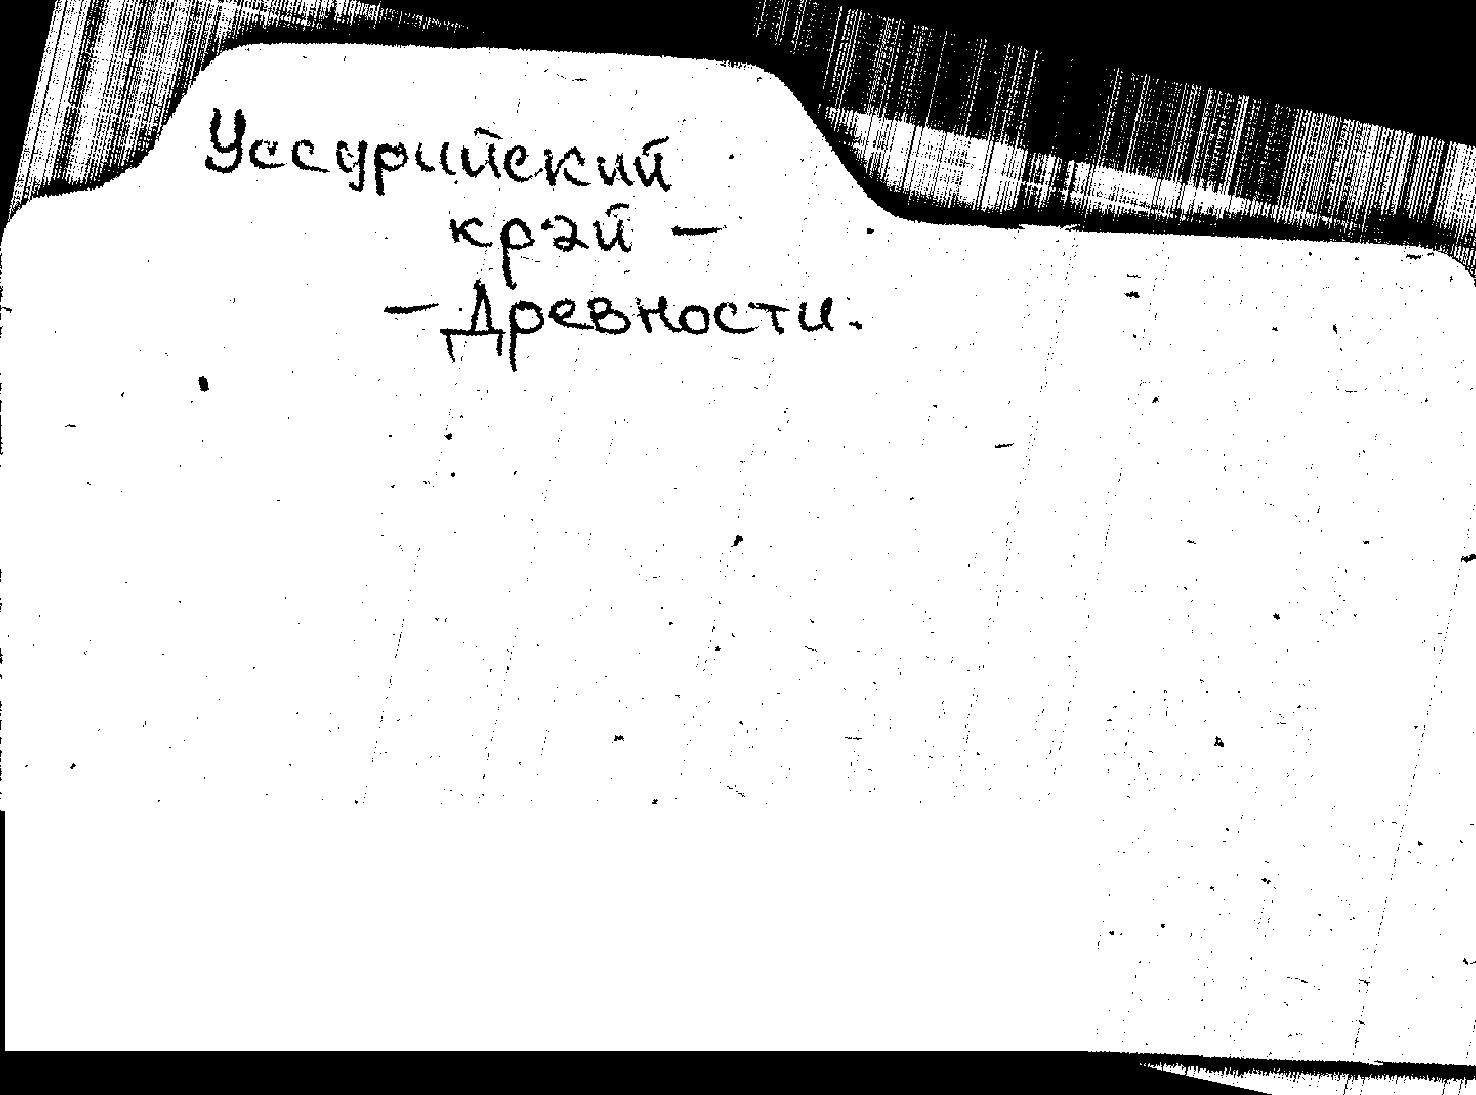 Уссурийский
край —
— Древности.